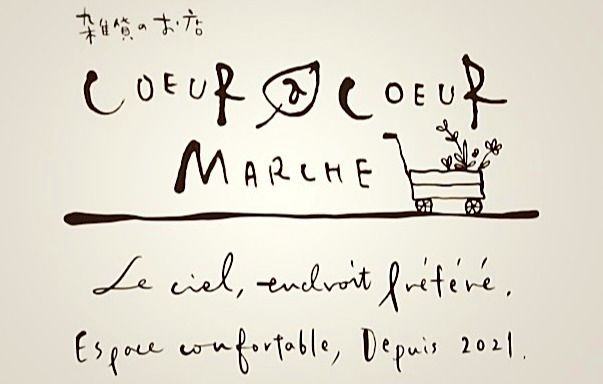 雑貨のお店
COEUR a COEUR
MARCHE
Le ciel, endroit préféré.
Espace confortable, Depuis 2021.